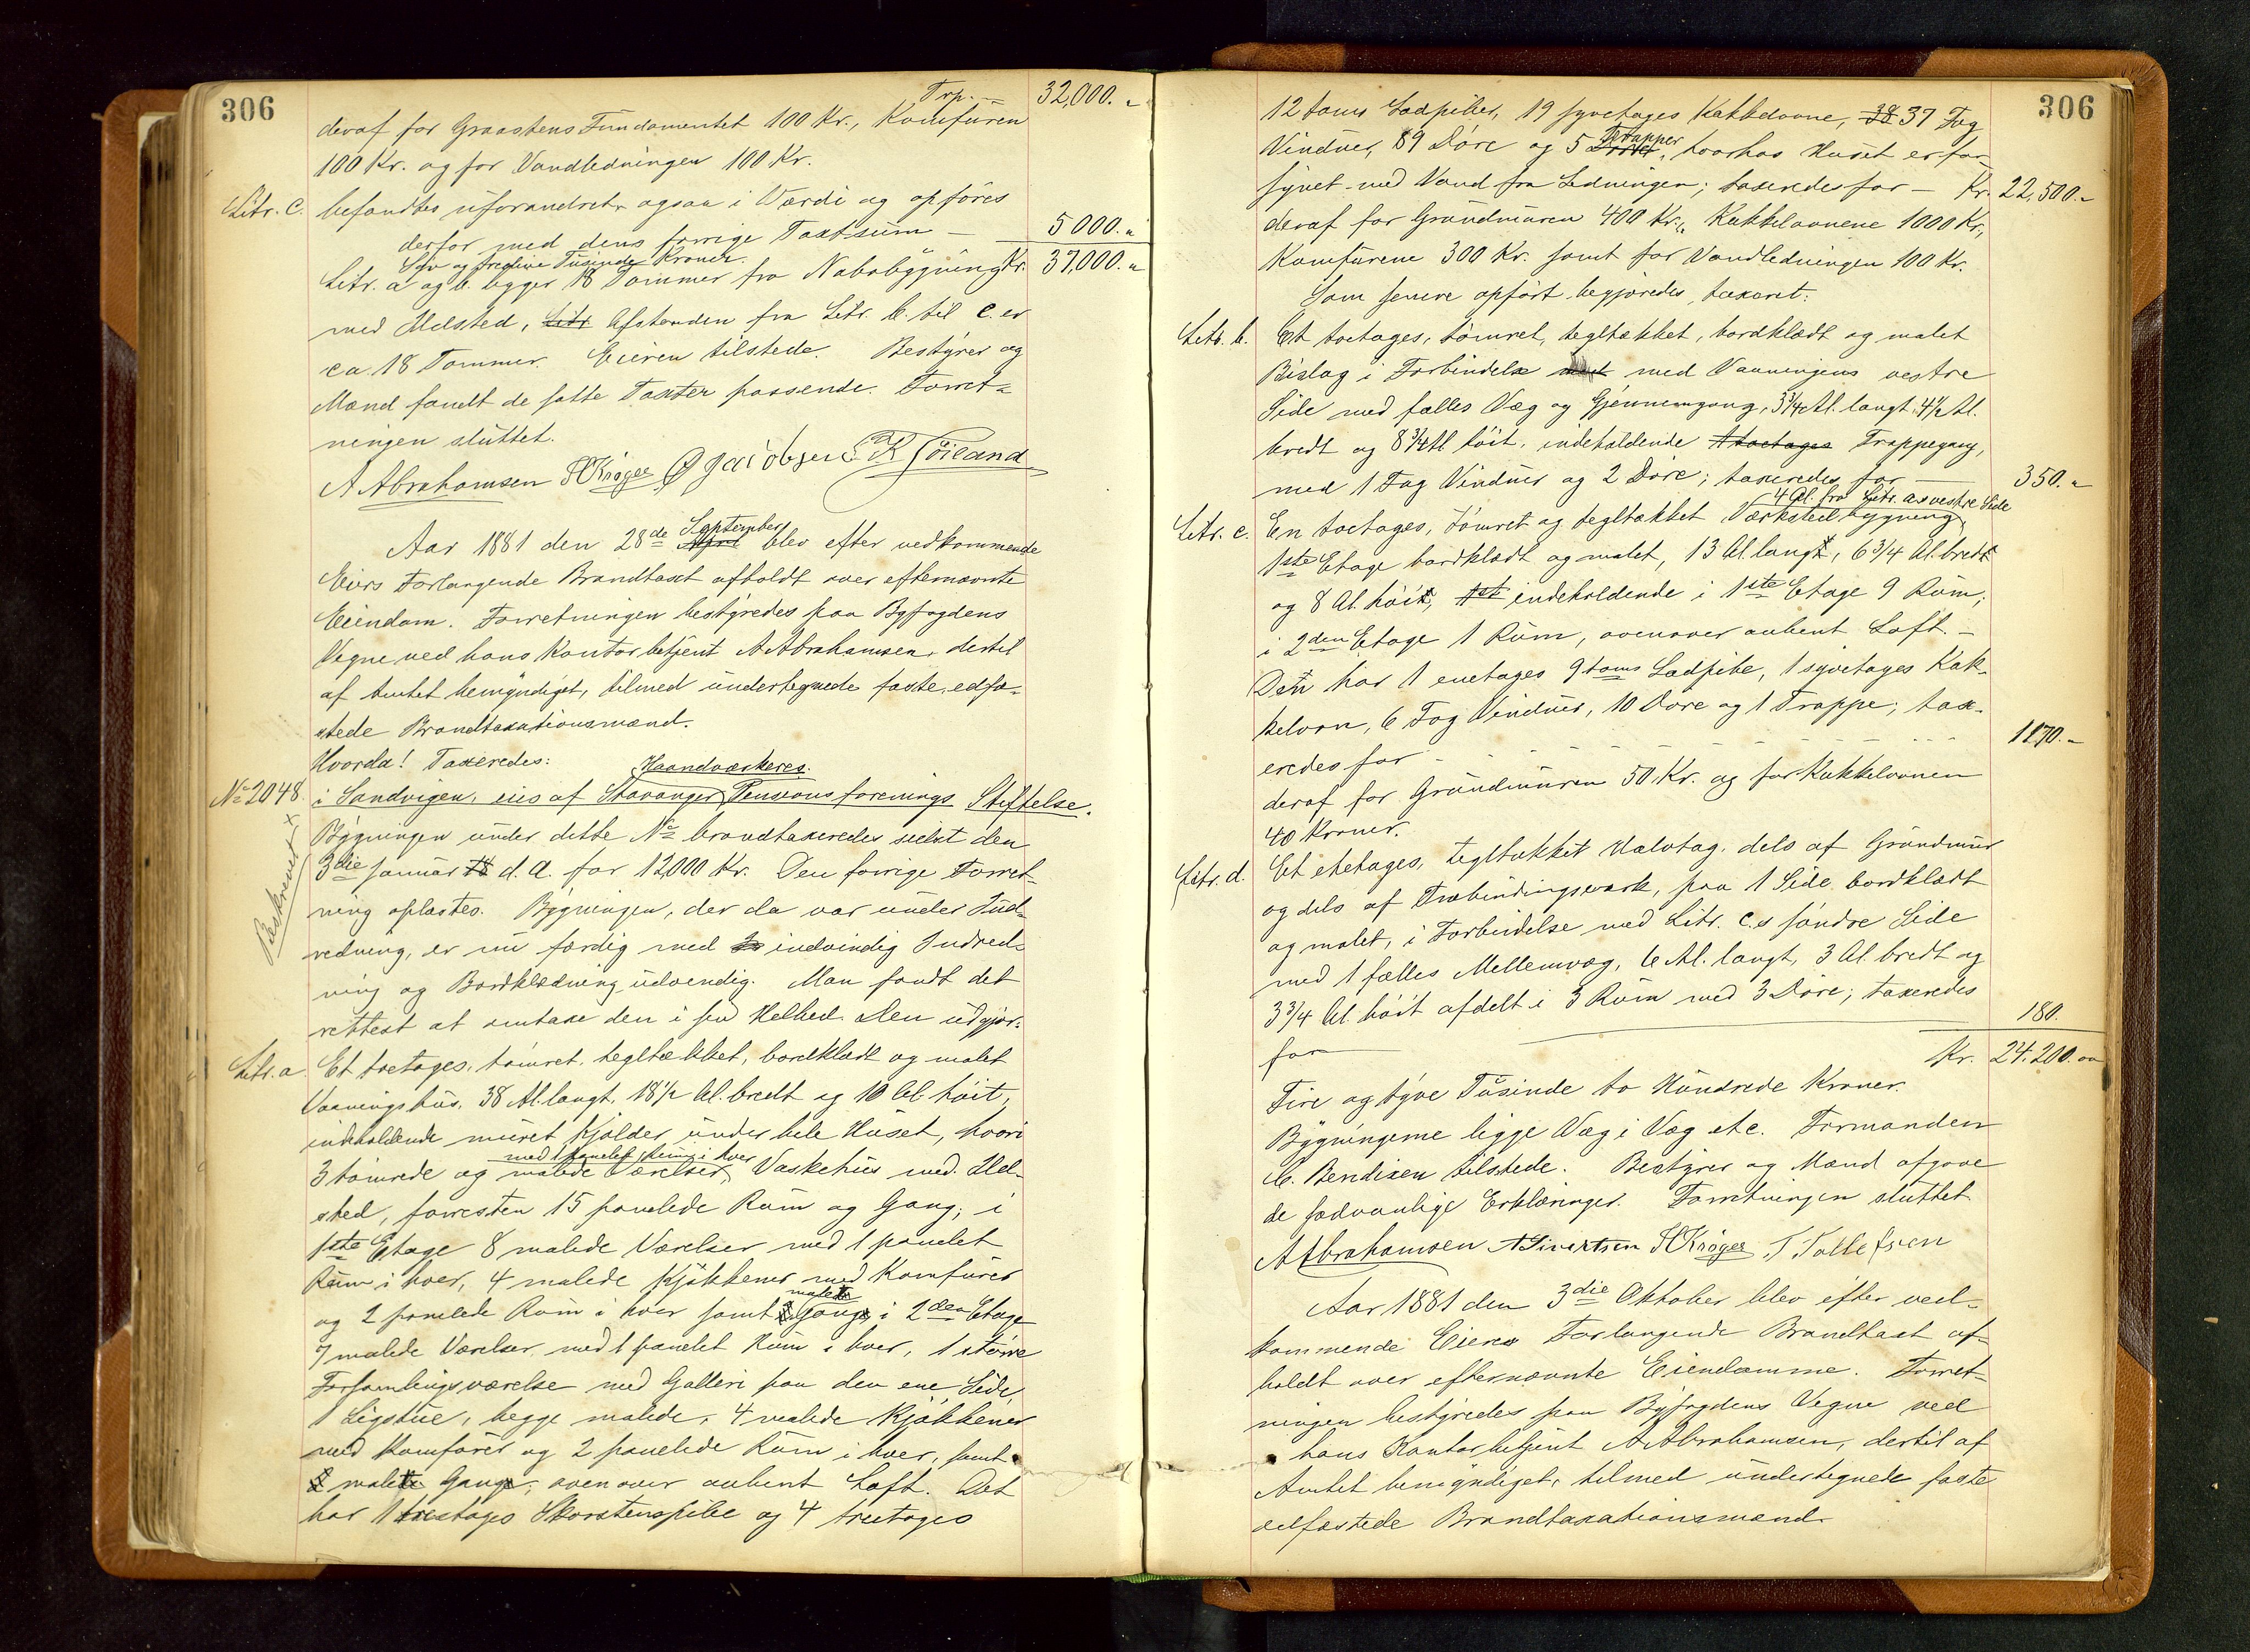 306
Trp. — 32,000. „
deraf for Graastens Fundamentet 100 Kr., Komfuren
100 Kr. og for Vandledningen 100 Kr.
Litr. c. befandtes uforandret ogsaa i Værdi og opføres
derfor med dens forrige Taxtsum — 5000. „
Syv og tredive Tusinde Kroner. Kr. 37,000. „
Litr. a og b. ligger 18 Tommer fra Nabobygning
med Ildsted, Litr Afstanden fra Litr. b. til c. er
ca. 18 Tommer. Eieren tilstede. Bestyrer og
Mænd fandt de satte Taxter passende. Forret-
ningen sluttet.
A Abrahamsen H Krøger O Jacobsen K Töiland
Aar 1881 den 28de April September blev efter vedkommende
Eiers Forlangende Brandtaxt afholdt over efternævnte
Eiendom. Forretningen bestyredes paa Byfogdens
Vegne ved hans Kontorbetjent A Abrahamsen, dertil
af Amtet bemyndiget, tilmed undertegnede faste, edfæ-
stede Brandtaxationsmænd.
Hvorda! Taxeredes:
Haandværkeres
No 2048. i Sandvigen, eies af Stavanger Pensionsforenings Stiftelse.
Beskrevet x
Bygningen under dette No brandtaxeredes sidst den
3die Januar d. A. for 12,000 Kr. Den forrige Forret-
ning oplæstes. Bygningen, der da var under Ind-
redning, er nu færdig med indvindig Indred-
ning og Bordklædning udvendig. Man fandt det
rettest at omtaxe den i sin Helhed. Den udgjør:
Litr. a. Et toetages, tømret, tegltækket, bordklædt og malet
Vaaningshus, 38 Al. langt, 18 1/2 Al. bredt og 10 Al. høit,
indeholdende muret Kjælder under hele Huset, hvori
3 tømrede og malede Værelser, med 1 panelet Rum i hver Vaskehus med Ild-
sted, forresten 15 panelede Rum og Gang; i
1ste Etage 8 malede Værelser med 1 panelet
Rum i hver, 4 malede Kjøkkener med Komfurer
og 2 panelede Rum i hver samt malet Gang, i 2den Etage
7 malede Værelser med 1 panelet Rum i hver, 1 større
Forsamlingsværelse med Galleri paa den ene Side,
1 Ligstue, begge malede, 4 malede Kjøkkener
med Komfurer og 2 panelede Rum i hver, samt
malet Gang, ovenover aabent Loft. Det
har 1 treetages Skorstenspibe og 4 treetages
306
12 toms Lodpiber, 19 syvetages Kakkelovne, 38 37 Fag
Vinduer, 89 Døre og 5 Døre Trapper, hvorhos Huset er for-
synet med Vand fra Ledningen; taxeredes for — Kr. 22,500. „
deraf for Grundmuren 400 Kr., Kakkelovnene 1000 Kr.,
Komfurene 300 Kr. samt for Vandledningen 100 Kr.
Som senere opført begjæredes taxeret:
Litr. b. Et toetages, tømret, tegltækket, bordklædt og malet
Bislag i Forbindelse med Vaaningens vestre
Side med fælles Væg og Gjennemgang, 3 3/4 Al. langt, 4 1/2 Al.
bredt og 8 3/4 Al høit, indeholdende 1 toetages Trappegang,
med 1 Fag Vinduer og 2 Døre; taxeredes for — 350. „
4 Al. fra Litr. as vestre Side
Litr. c. En toetages, tømret og tegltækket Værkstedbygning
1ste Etage bordklædt og malet, 13 Al. lang, 6 3/4 Al. bred
og 8 Al. høi, indeholdende i 1ste Etage 9 Rum;
i 2den Etage 1 Rum, ovenover aabent Loft. —
Den har 1 enetages 9 toms Lodpibe, 1 syvetages Kak-
kelovn, 6 Fag Vinduer, 10 Døre og 1 Trappe; tax-
eredes for — 1170. „
deraf for Grundmuren 50 Kr. og for Kakkelovnen
40 Kroner.
Litr. d. Et etetages, tegltækket Halvtag, dels af Grundmur
og dels af Træbindingsværk, paa 1 Side bordklædt
og malet, i Forbindelse med Litr. c.s søndre Side
med 1 fælles Mellemvæg, 6 Al. langt, 3 Al. bredt og
3 3/4 Al. høit afdelt i 3 Rum med 3 Døre; taxeredes
for — 180.
Kr. 24,200. „
Fire og tyve Tusinde to Hundrede Kroner.
Bygningerne ligge Væg i Væg etc. Formanden
C. Bendixen tilstede. Bestyrer og Mænd afgave
de sædvanlige Erklæringer. Forretningen sluttet.
A Abrahamsen A Sivertsen H Krøger T Tollefsen
Aar 1881 den 3die Oktober blev efter ved-
kommende Eieres Forlangende Brandtaxt af-
holdt over efternævnte Eiendomme. Forret-
ningen bestyredes paa Byfogdens Vegne ved
hans Kontorbetjent A Abrahamsen, dertil af
Amtet bemyndiget, tilmed undertegnede faste
edfæstede Brandtaxationsmænd.